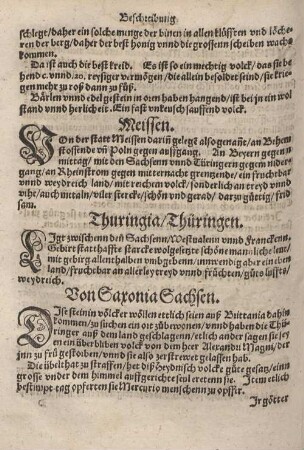 Beschreibung
schlegt/daher ein solche menge der binen in allen klüfften vnd löche
ren der berg/daher der best honig vnnd die grossenn scheiben wachs
kommen.
Da ist auch die best kreid. Es ist so ein mechtig volck/das sie be
hend c. vnnd .20. reysiger vermögen/die all ein besoldet seind/sie krie
gen mehr zu roß dann zu fůß.
Bärlen vnnd edel gestein in oren haben hangend/ist bey jn ein wol
stand vnnd herligkeit. Ein fast vntreusch sauffend volck.
Meissen.
VOn der statt Meissen darin gelegt also genañt/an Behem
stossende vñ Poln gegen auffgang. An Beyern gegen
mittag/mit den Sachsenn vnnd Türingern gegen nider
gang/an Rheinstrom gegen mitternacht grenzende/ein fruchtbar
vnnd weydreich land/mit reichen volck/sonderlich an treyd vnnd
vihe/auch metaln/vil er stercke/schön vnd gerad/ darzu gütig/frid
sam.
Thuringia/Thüringen.
LIgt zwischenn den Sachsenn/Westualenn vnnd Franckenn.
Gebirt statthaffte starcke wolgesetzte schöne manliche lent/
mit gebirg allenthalben vmbgebenn/inwendig aber ein eben
land/fruchtbar an allerley treyd vnnd früchten/guts luffts/
weydreich.
Von Saxonia Sachsen.
DIse stein völcker wöllen etlich sein auß Brittania dahin
kommen/zu suchen ein ort zů bewonen/vnnd haben die Thü
ringer auß dem land geschlagenn/etlich ander sagen sie sey
en ein überbliben volck von dem heer Alexandri Magni/der
jnn zu frů gestorben/vnnd sie also zerstrewet gelassen hab.
Die übelthat zu straffen/het diß Heydnisch volck gute gesatz/einn
grosse vnder dem himmel auffgerichte seul eretenn sie. Item etlich
bestimpt tag opferten sie Mercurio menschenn zu opffer.
Ir götter